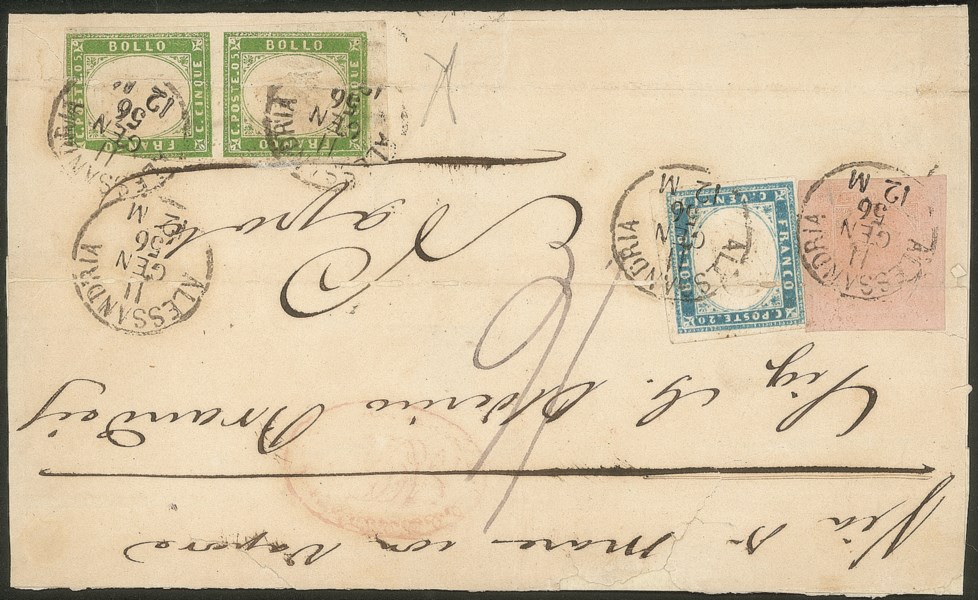 BOLLO
C. POSTE. 05
C. CINQUE
FRANCO
BOLLO
C. POSTE. 05
C. CINQUE
FRANCO
ALESSANDRIA
11
GEN
56
12 M
ALESSANDRIA
11
GEN
56
12
ALESSANDRIA
11
GEN
56
12 M
FRANCO
C. POSTE. 20
BOLLO
C. VENTI
ALESSANDRIA
11
GEN
56
12 M
ALESSANDRIA
11
GEN
56
12 M
Via di Mare con Vapore
Sig G.
Napoli